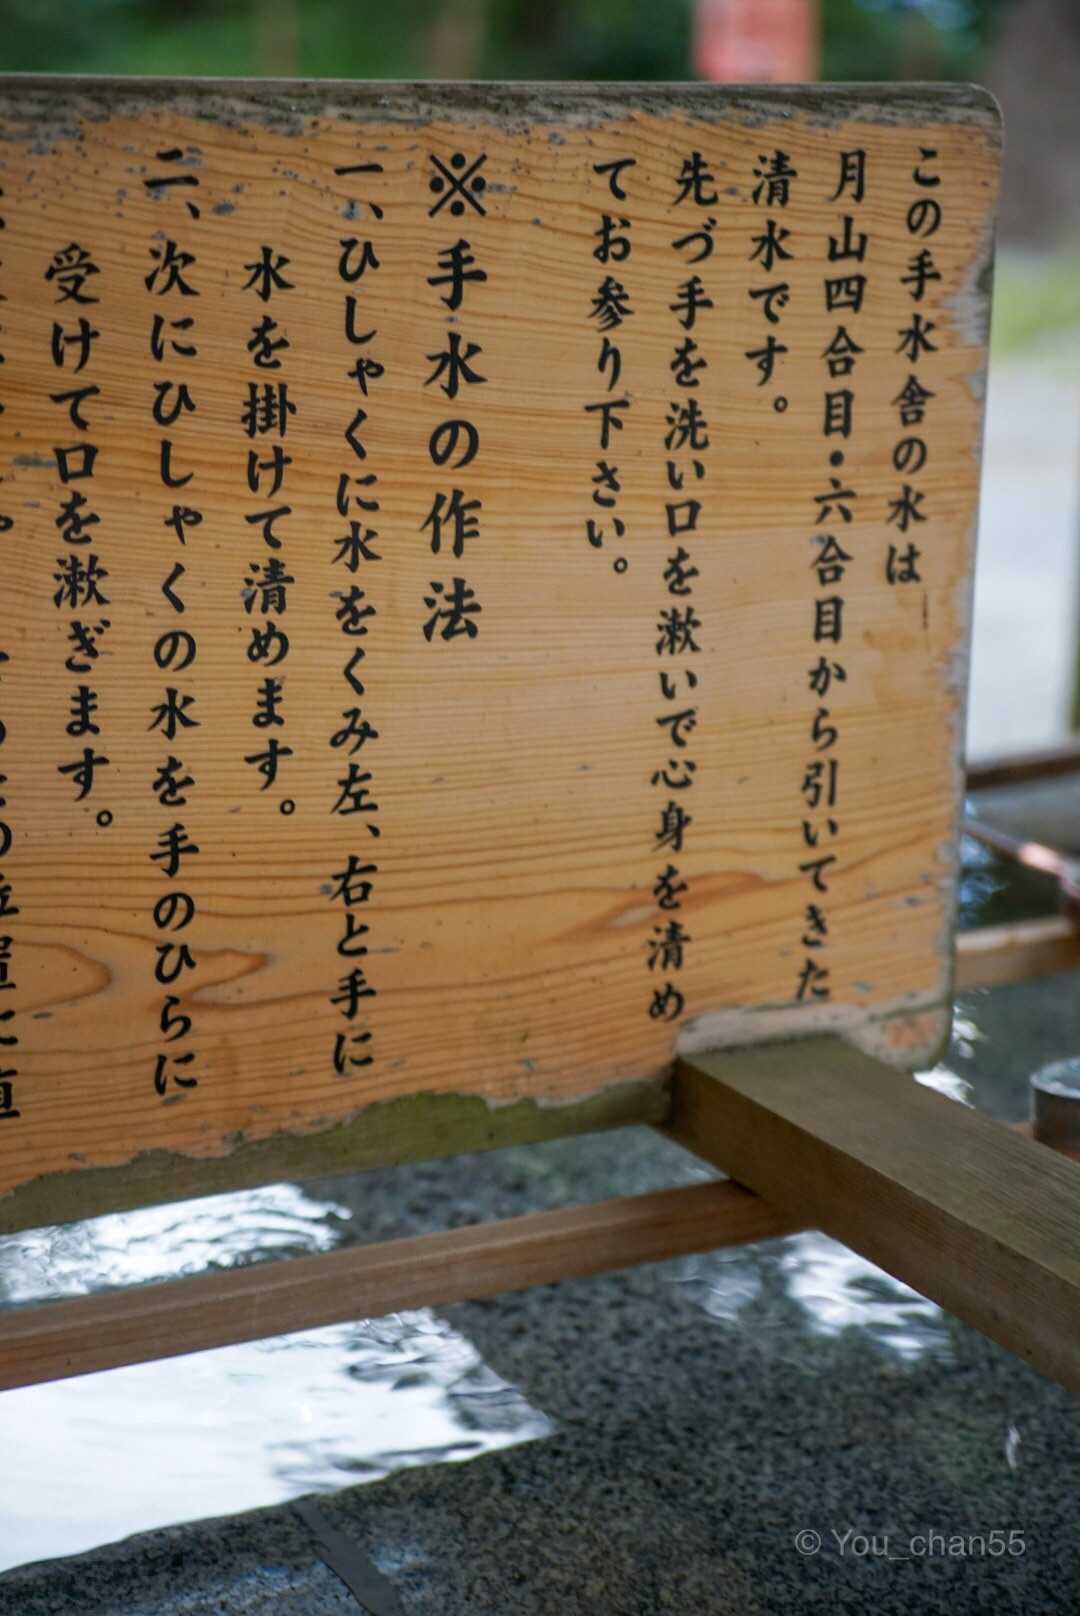 この手水舎の水は
月山四合目・六合目から引いてきた
清水です。
先づ手を洗い口を漱いで心身を清め
てお参り下さい。
※手水の作法
一、ひしゃくに水をくみ左、右と手に
水を掛けて清めます。
二、次にひしゃくの水を手のひらに
受けて口を漱ぎます。
© You_chan55